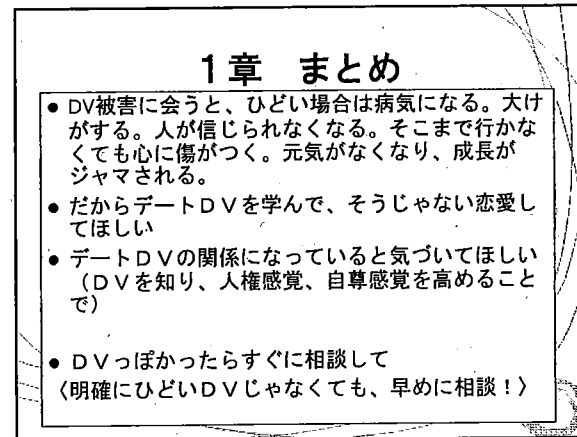 1章　まとめ
● DV被害に会うと、ひどい場合は病気になる。大け
がする。人が信じられなくなる。そこまで行かな
くても心に傷がつく。元気がなくなり、成長が
ジャマされる。
● だからデートDVを学んで、そうじゃない恋愛し
てほしい
● デートDVの関係になっていると気づいてほしい
（DVを知り、人権感覚、自尊感覚を高めること
で）
● DVっぽかったらすぐに相談して
〈明確にひどいDVじゃなくても、早めに相談！〉